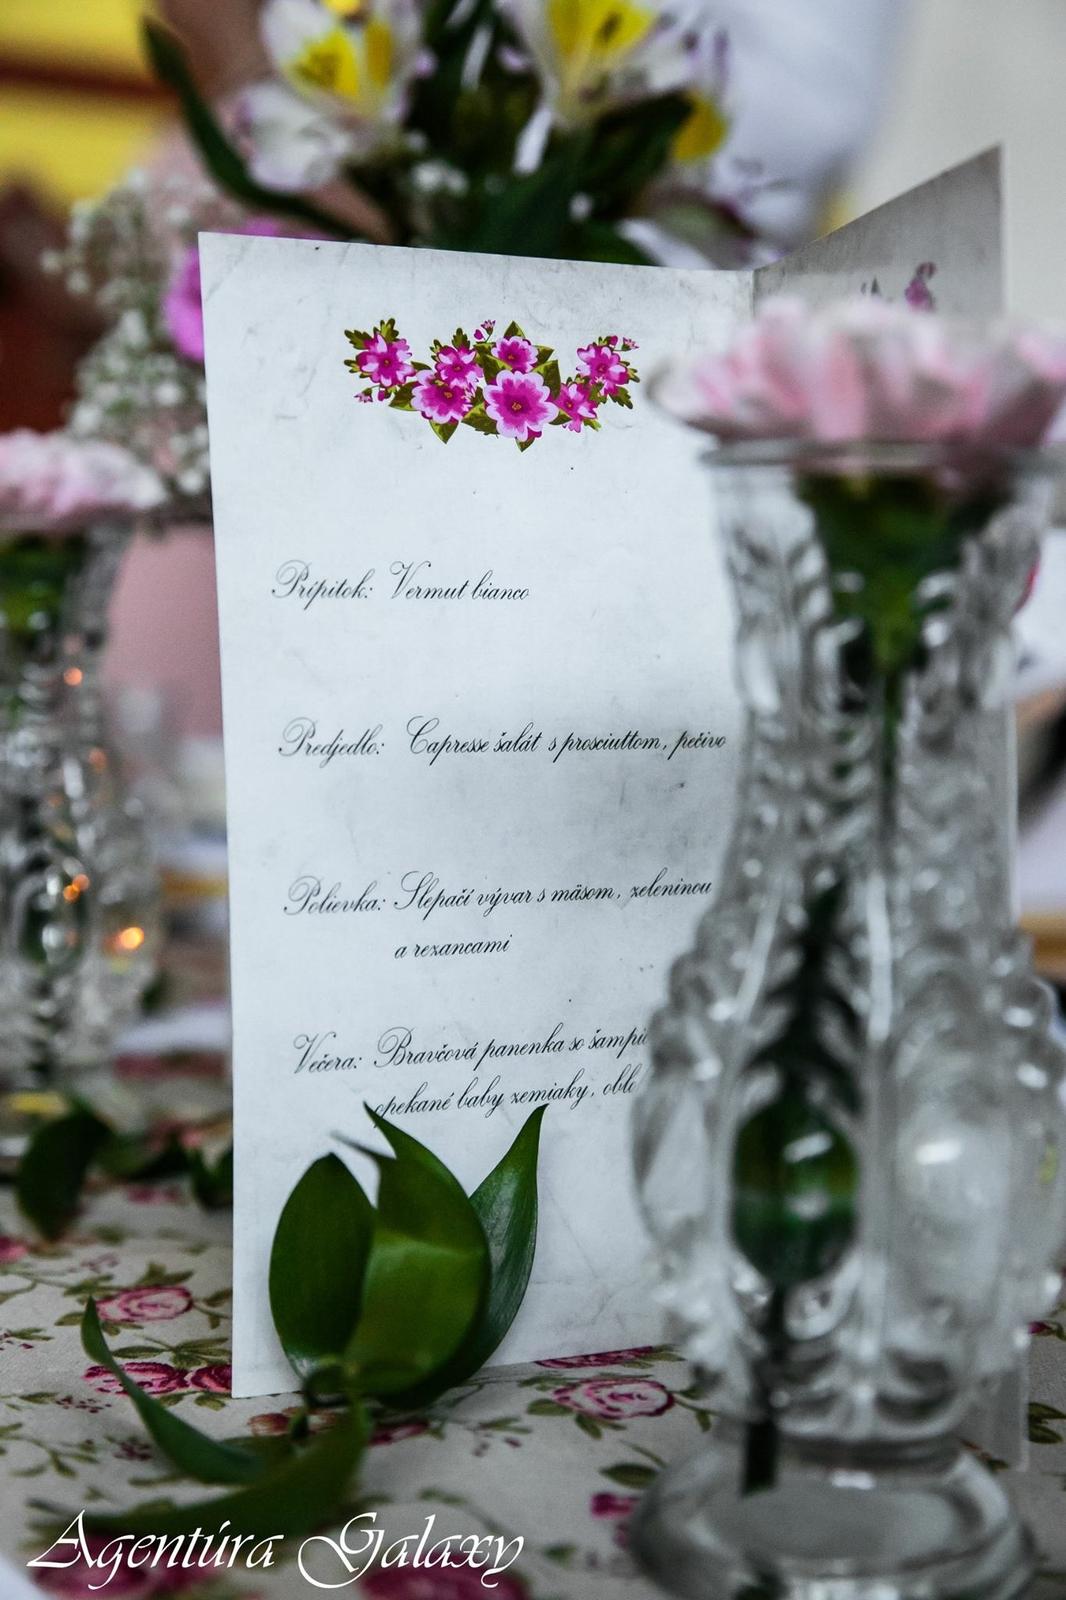 Prípitok: Vermut bianco
Predjedlo: Capresse šalát s prosciuttom, pečivo
Polievka: Slepačí vývar s mäsom, zeleninou
a rezancami
Večera: Bravčová panenka so
opekané baby zemiaky,
Agentúra Galaxy